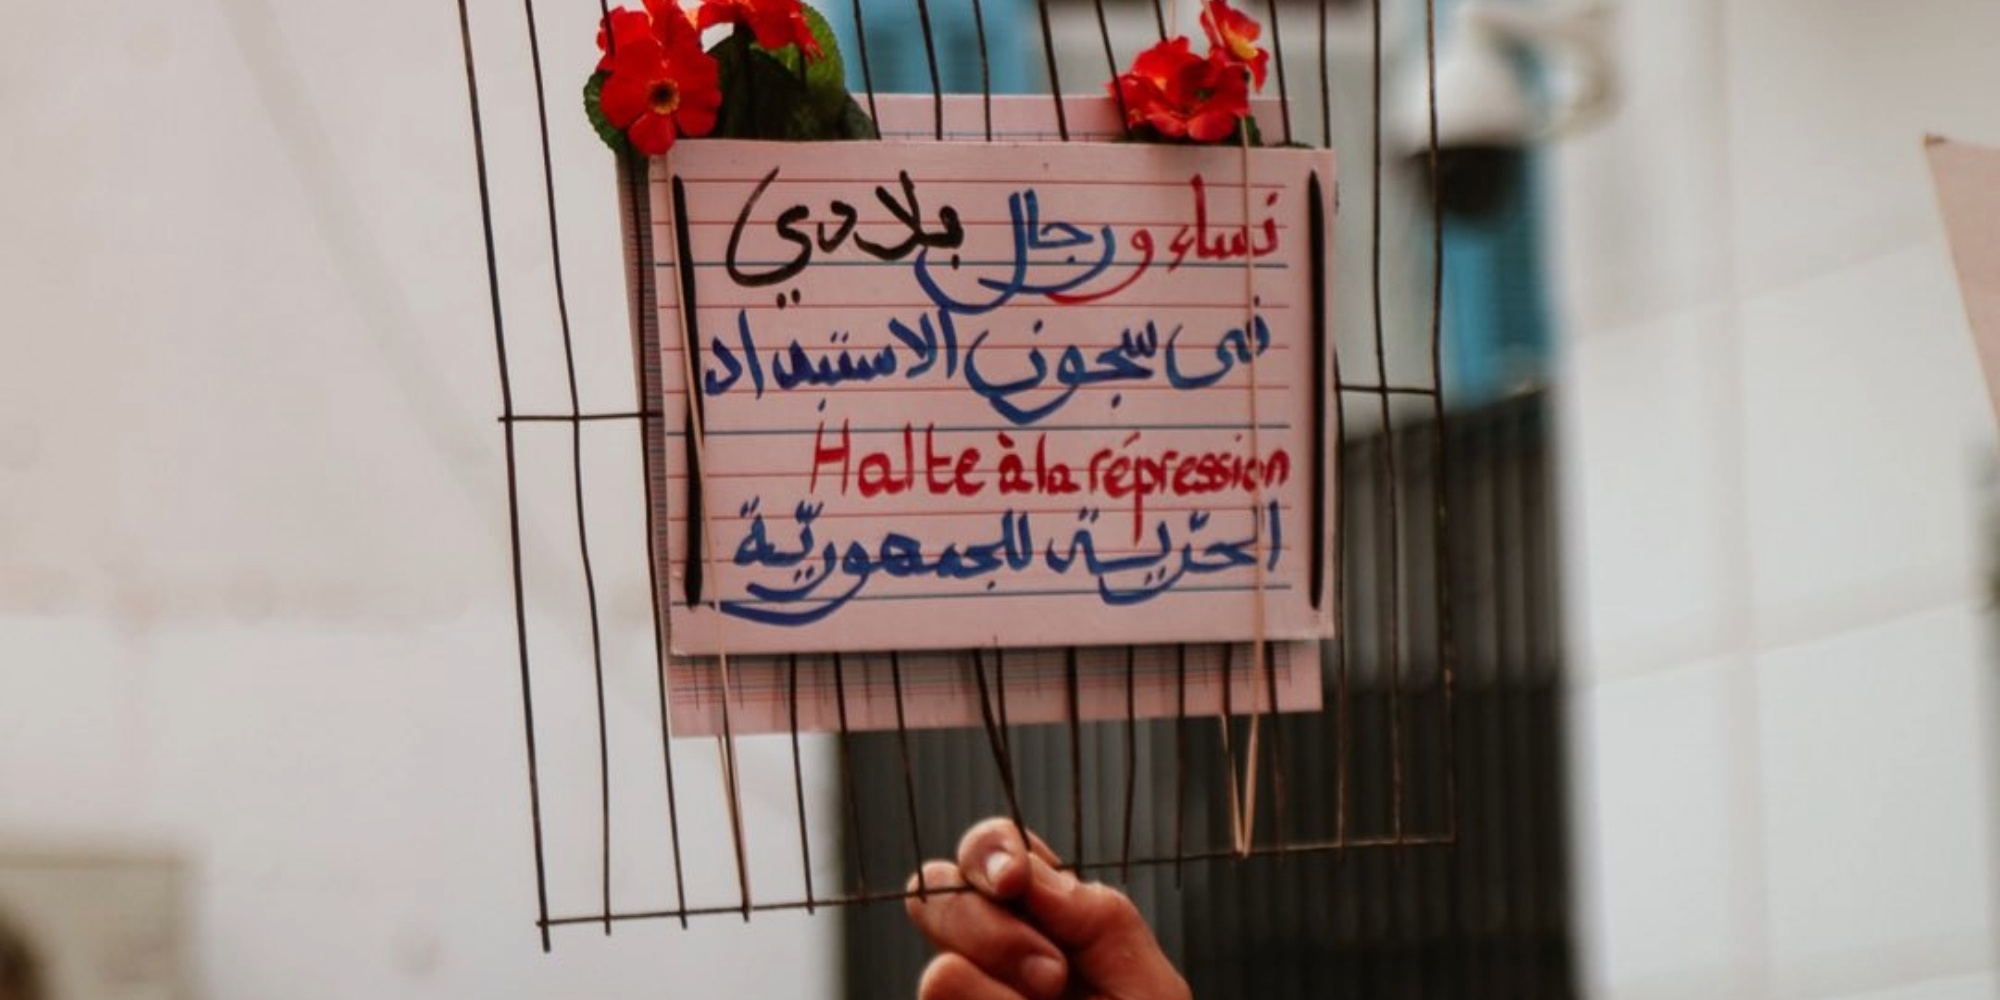 نساء و رجال بلادي
في سجون الاستبداد
Halte à la répression
الحرّية للجمهوريّة